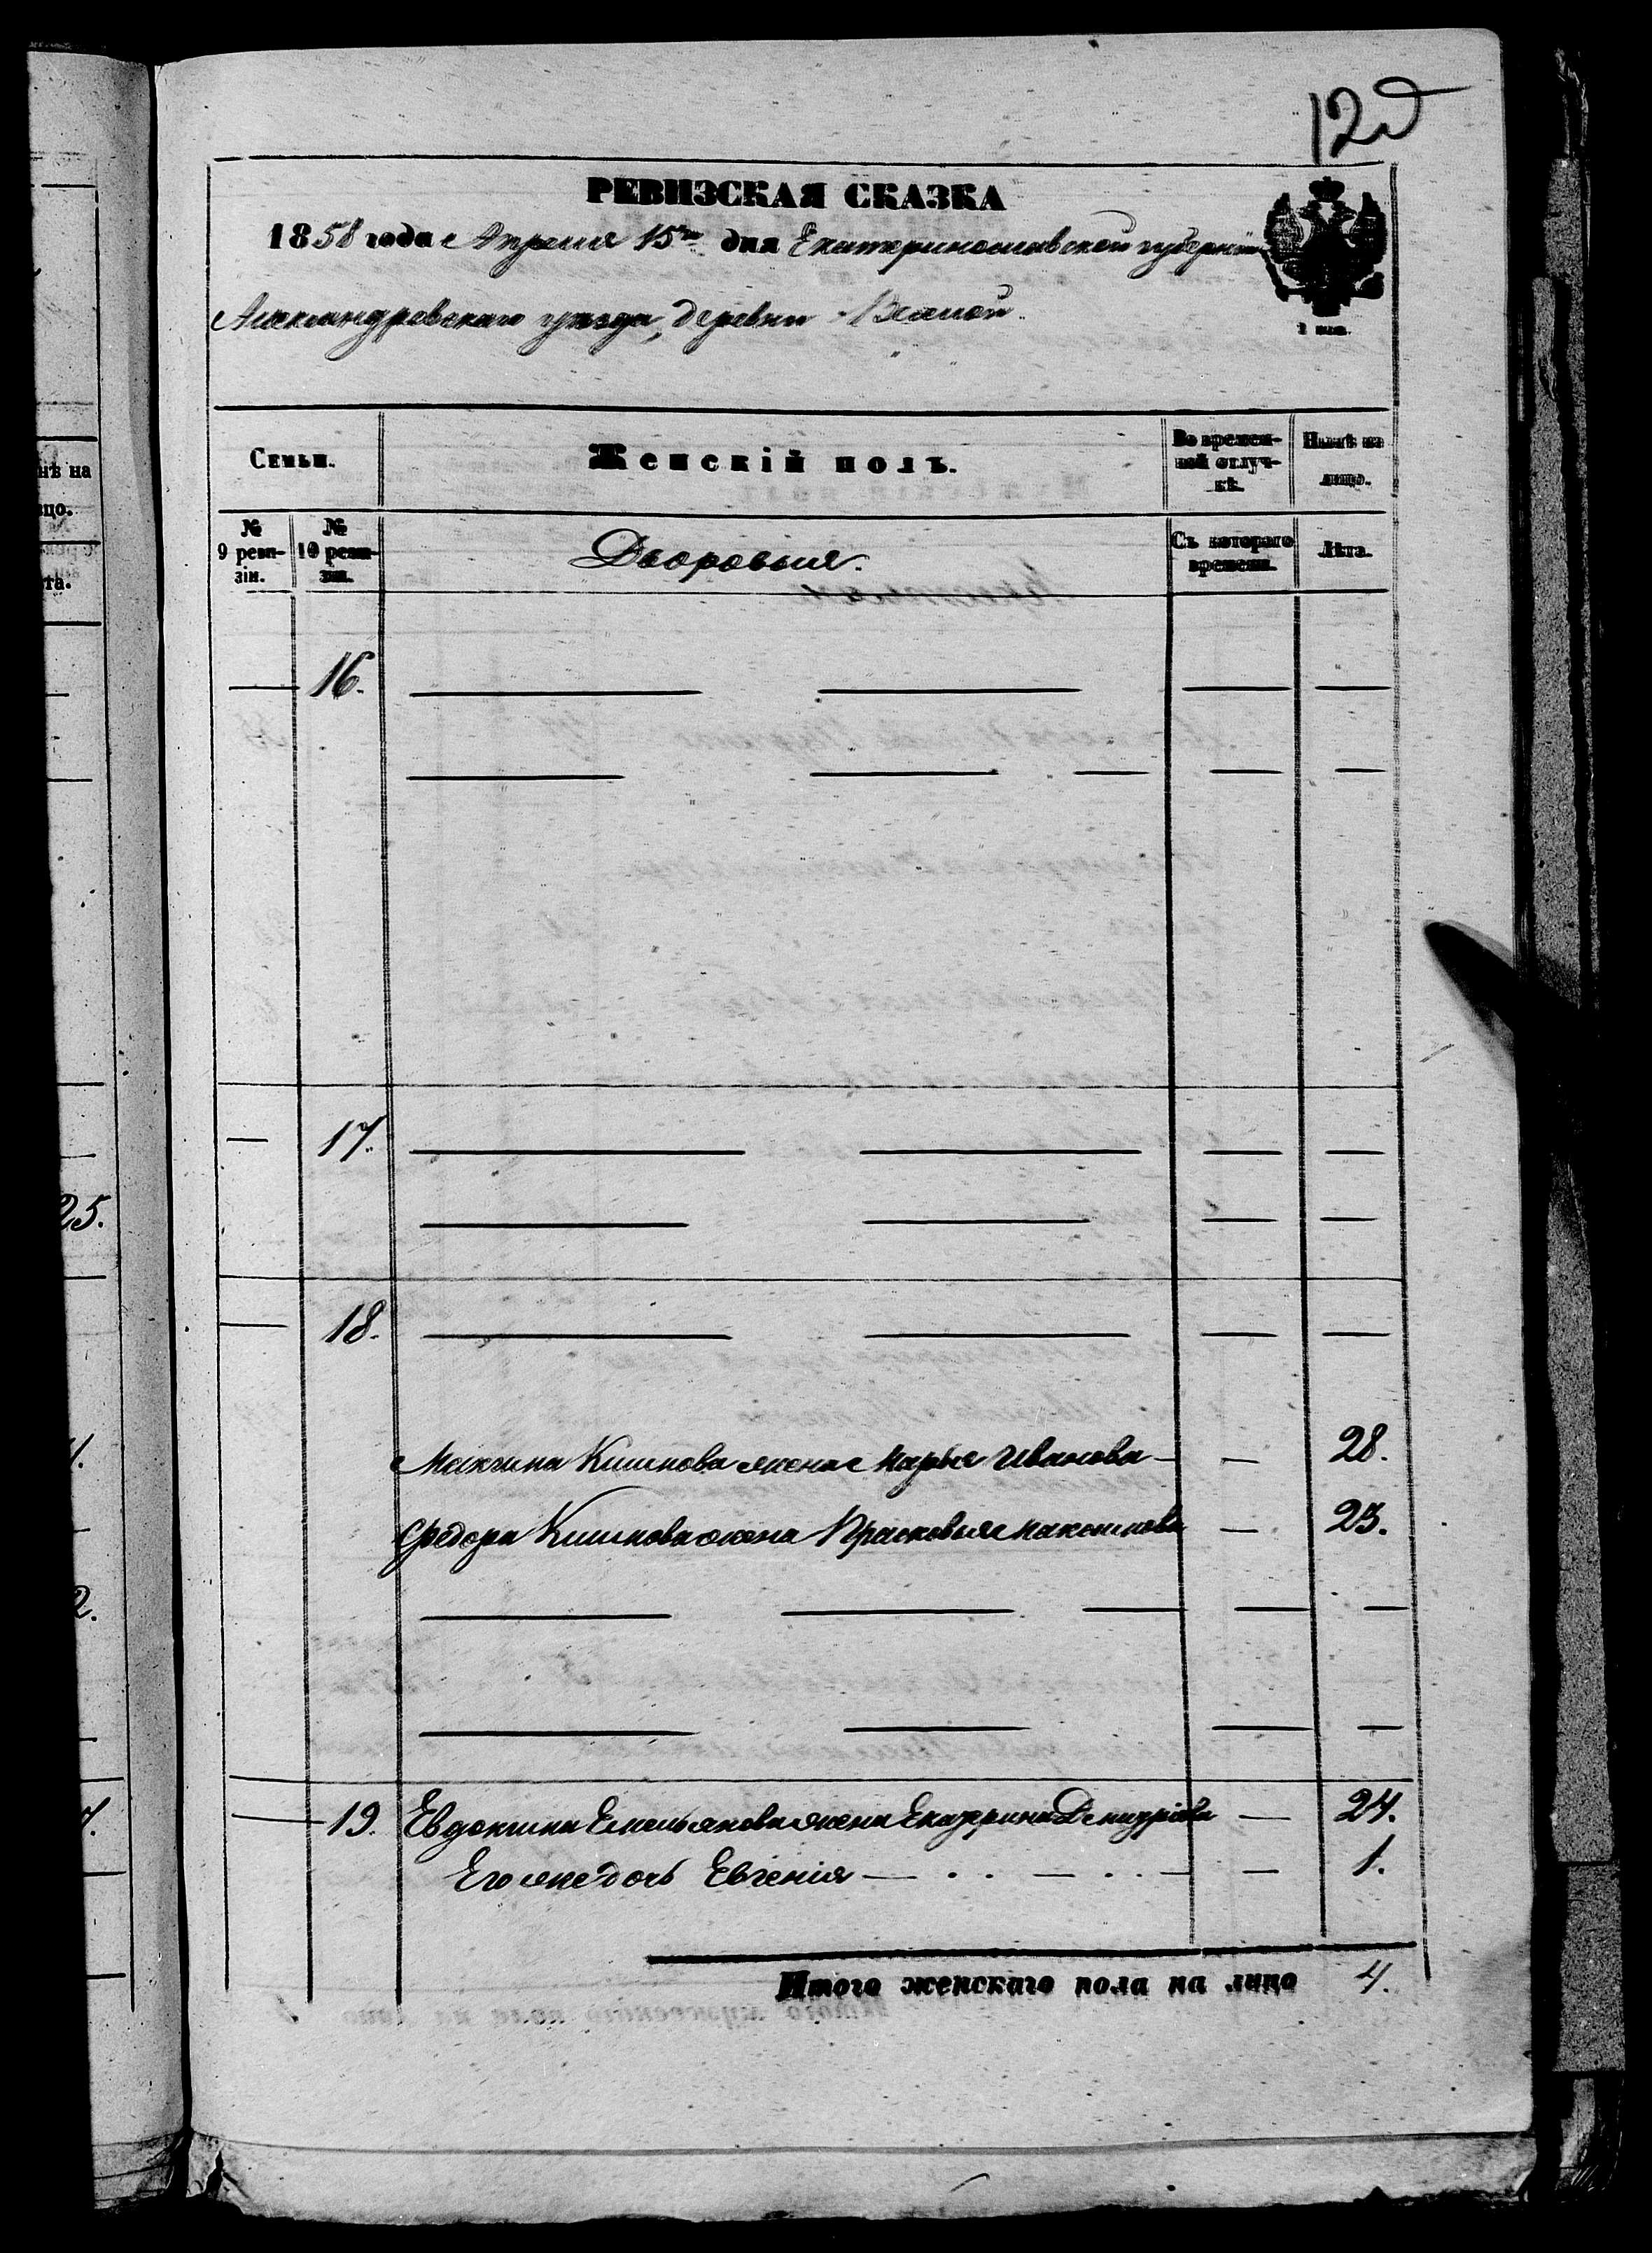 120
РЕВИЗСКАЯ СКАЗКА
1858 года Апреля 15го дня Екатеринославской губернiи
Александровскаго уезда, деревни
1 кол.
Семьи.
Женскiй полъ.
Во времен-
ной отлуч-
кѣ.
Нынѣ на
лицо.
№
9 реви-
зiи.
№
10 реви-
зiи.
Дворовыя.
Съ котораго
времени.
Лѣта.
16.
17.
18.
Максима Климова жена Марья Иванова — — 28.
Федора Климова жена Прасковья Максимова — 23.
19. Евдокима Емельянова жена Екатерина Дмитрiева — 24.
Его же дочь Евгенiя — 1.
Итого женскаго пола на лицо 4.
нѣ на
цо.
та.
25.
1.
2.
7.